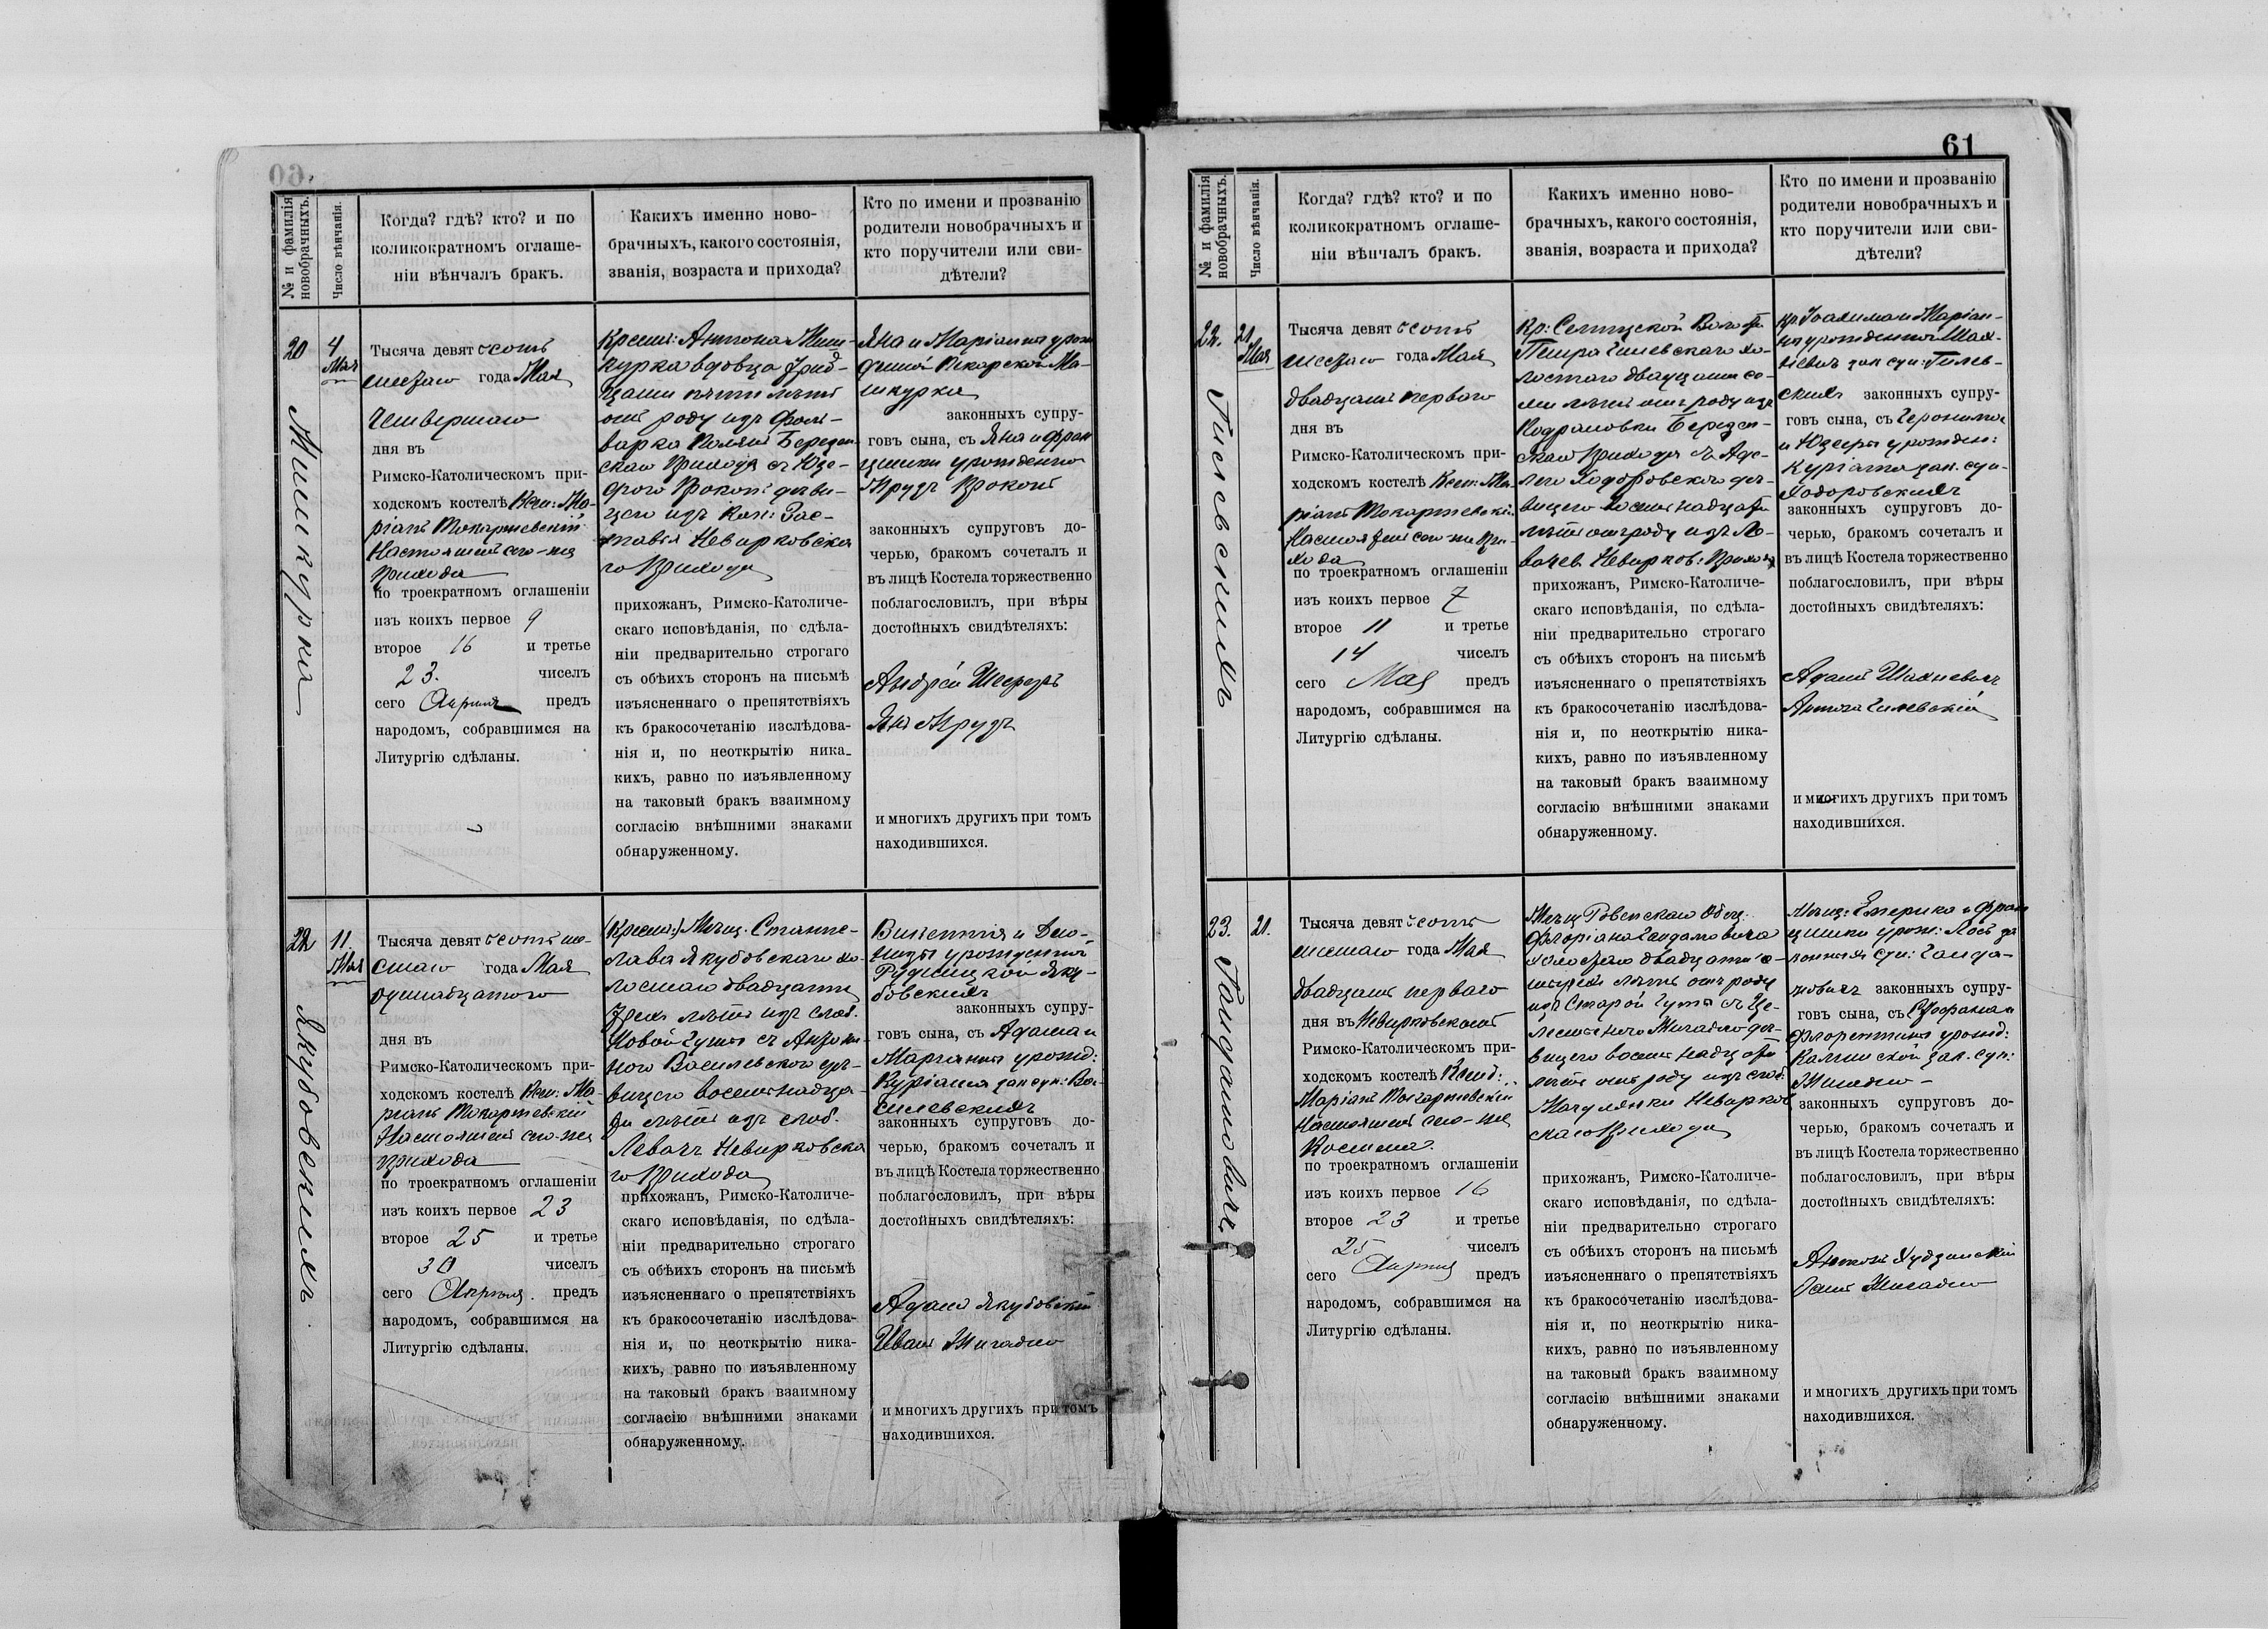 60
№ и фамилія новобрачныхъ.
Число вѣнчанія.
Когда? гдѣ? кто? и по
коликократномъ оглаше-
ніи вѣнчалъ бракъ.
Какихъ именно ново-
брачныхъ, какого состоянія,
званія, возраста и прихода?
Кто по имени и прозванію
родители новобрачныхъ и
кто поручители или сви-
дѣтели?
20
4
Мая
Тысяча девятсотъ
шестаго года Мая
Четвертаго
дня въ
Римско-Католическомъ при-
ходскомъ костелѣ Ксен: Ма-
ріанъ Токаржевскій
Настоятель сего-же
прихода
по троекратномъ оглашеніи
изъ коихъ первое 9
второе 16 и третье
23. чиселъ
сего Апрѣля предъ
народомъ, собравшимся на
Литургію сдѣланы.
Антона
вдовца трид-
цати пяти лѣтъ
отъ роду изъ фоль-
варка
скаго прихода съ Юзе-
фою
цею изъ
Невирковска-
го Прихода
прихожанъ, Римско-Католиче-
скаго исповѣданія, по сдѣла-
ніи предварительно строгаго
съ обѣихъ сторонъ на письмѣ
изъясненнаго о препятствіяхъ
къ бракосочетанію изслѣдова-
нія и, по неоткрытію ника-
кихъ, равно по изъявленному
на таковый бракъ взаимному
согласію внѣшними знаками
обнаруженному.
Яна и Маріанны урож
законныхъ супру-
говъ сына, съ Яна и Фран
цишки урожденной
законныхъ супруговъ до-
черью, бракомъ сочеталъ и
въ лицѣ Костела торжественно
поблагословилъ, при вѣры
достойныхъ свидѣтеляхъ:
Андрей
Янъ
и многихъ другихъ при томъ
находившихся.
11.
Мая
Якубовскихъ
Тысяча девятсотъ ше-
стаго года Мая
одинадцатого
дня въ
Римско-Католическомъ при-
ходскомъ костелѣ Ксен: Ма-
ріанъ Токаржевскій
Настоятель сего-же
прихода
по троекратномъ оглашеніи
изъ коихъ первое 23
второе 25 и третье
30 чиселъ
сего Апрѣля. предъ
народомъ, собравшимся на
Литургію сдѣланы.
(Крест:) Мѣщ. Стани-
слава Якубовскаго хо-
лостаго двадцати
трехъ лѣтъ изъ слоб.
Новой Гуты съ
Василевскою дѣ-
вицею восемнадца-
ти лѣтъ изъ слоб.
Левачъ Невирковска
го Прихода
прихожанъ, Римско-Католиче-
скаго исповѣданія, по сдѣла-
ніи предварительно строгаго
съ обѣихъ сторонъ на письмѣ
изъясненнаго о препятствіяхъ
къ бракосочетанію изслѣдова-
нія и, по неоткрытію ника-
кихъ, равно по изъявленному
на таковый бракъ взаимному
согласію внѣшними знаками
обнаруженному.
Викентія и Дио-
низы урожденной
Рудницкой Яку-
бовскихъ
законныхъ супру-
говъ сына, съ Адама и
Маріанны урожд:
Куріата зак. суп: Ва-
силевскихъ
законныхъ супруговъ до-
черью, бракомъ сочеталъ и
въ лицѣ Костела торжественно
поблагословилъ, при вѣры
достойныхъ свидѣтеляхъ:
Адамъ Якубовскій
Иванъ Жигадло
и многихъ другихъ при томъ
находившихся.
61
№ и фамилія новобрачныхъ.
Число вѣнчанія.
Когда? гдѣ? кто? и по
коликократномъ оглаше-
ніи вѣнчалъ бракъ.
Какихъ именно ново-
брачныхъ, какого состоянія,
званія, возраста и прихода?
Кто по имени и прозванію
родители новобрачныхъ и
кто поручители или сви-
дѣтели?
22.
21
Мая
Гилевскихъ
Тысяча девятсотъ
шестаго года Мая
двадцать перваго
дня въ
Римско-Католическомъ при-
ходскомъ костелѣ Ксен: Ма-
ріанъ Токаржевскій
Настоятель сего-же при-
хода
по троекратномъ оглашеніи
изъ коихъ первое 7
второе 11 и третье
14 чиселъ
сего Мая предъ
народомъ, собравшимся на
Литургію сдѣланы.
Петра Гилевскаго хо-
лостаго двадцати се-
ми лѣтъ отъ роду изъ
скаго прихода съ Аде-
лею Ходоровскою дѣ-
вицею восемнадцати
лѣтъ отъ роду изъ Ле-
вачев Невирков: прихода
прихожанъ, Римско-Католиче-
скаго исповѣданія, по сдѣла-
ніи предварительно строгаго
съ обѣихъ сторонъ на письмѣ
изъясненнаго о препятствіяхъ
къ бракосочетанію изслѣдова-
нія и, по неоткрытію ника-
кихъ, равно по изъявленному
на таковый бракъ взаимному
согласію внѣшними знаками
обнаруженному.
Кр. Іоахима и Маріан-
ны урожденной Шах-
невичъ зак суп: Гилев-
скихъ законныхъ супру-
говъ сына, съ Героніма
и Юзефы урожден:
Куріата зак. суп-
Ходоровскихъ
законныхъ супруговъ до-
черью, бракомъ сочеталъ и
въ лицѣ Костела торжественно
поблагословилъ, при вѣры
достойныхъ свидѣтеляхъ:
Адамъ Шахневичъ
Антонъ Гилевскій
и многихъ другихъ при томъ
находившихся.
23.
21.
Тысяча девятсотъ
шестаго года Мая
двадцать перваго
дня въ Невирковскомъ
Римско-Католическомъ при-
ходскомъ костелѣ Ксенд:
Маріанъ Токаржевскій
Настоятель сего-же
Костела.
по троекратномъ оглашеніи
изъ коихъ первое 16
второе 23 и третье
25 чиселъ
сего Апрѣля предъ
народомъ, собравшимся на
Литургію сдѣланы.
Мѣщ Ровенскаго Общ:
Флоріана
холостаго двадцати че-
тырехъ лѣтъ отъ роду
изъ Старой Гуты съ Це-
лестиною Жигадло дѣ-
вицею восемнадцати
лѣтъ отъ роду изъ слоб:
Мочулянки Невирков
скаго Прихода
прихожанъ, Римско-Католиче-
скаго исповѣданія, по сдѣла-
ніи предварительно строгаго
съ обѣихъ сторонъ на письмѣ
изъясненнаго о препятствіяхъ
къ бракосочетанію изслѣдова-
нія и, по неоткрытію ника-
кихъ, равно по изъявленному
на таковый бракъ взаимному
согласію внѣшними знаками
обнаруженному.
Мѣщ: и Фран
цишки урож:
законныхъ супру-
говъ сына, съ
Флорентины урожд:
зак. суп:
Жигадло-
законныхъ супруговъ до-
черью, бракомъ сочеталъ и
въ лицѣ Костела торжественно
поблагословилъ, при вѣры
достойныхъ свидѣтеляхъ:
Антонъ
Жигадло
и многихъ другихъ при томъ
находившихся.